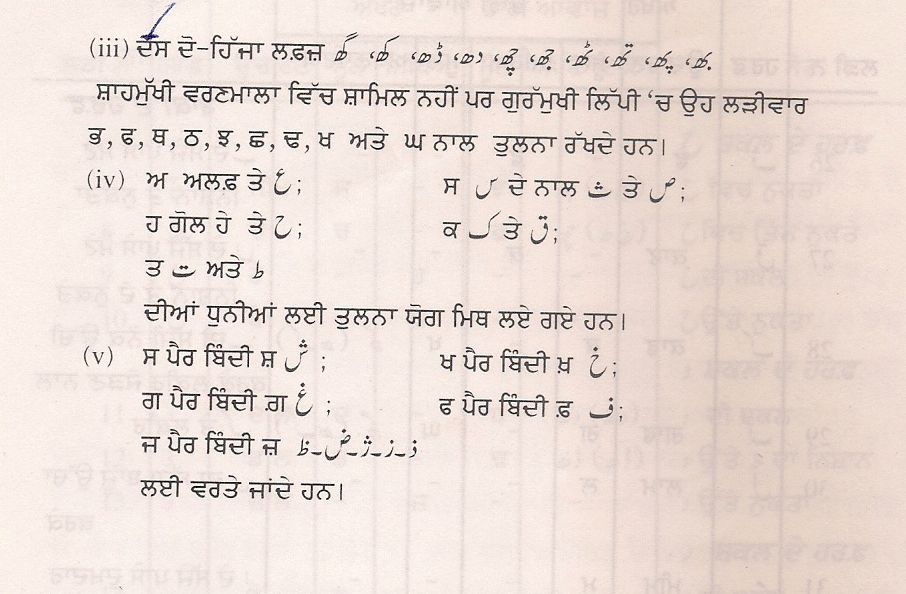 (iii) ਦਸ ਦੋ-ਹਿੱਜਾ ਲਫ਼ਜ਼ بھ، پھ، تھ، ٹھ، جھ، چھ، دھ، ڈھ، کھ، گھ
ਸ਼ਾਹਮੁੱਖੀ ਵਰਣਮਾਲਾ ਵਿੱਚ ਸ਼ਾਮਿਲ ਨਹੀਂ ਪਰ ਗੁਰੱਮੁਖੀ ਲਿੱਪੀ ‘ਚ ਉਹ ਲੜੀਵਾਰ
ਭ, ਫ, ਥ, ਠ, ਝ, ਛ, ਢ, ਖ ਅਤੇ ਘ ਨਾਲ ਤੁਲਨਾ ਰੱਖਦੇ ਹਨ।
(iv) ਅ ਅਲਫ਼ ਤੇ ع; ਸ س ਦੇ ਨਾਲ ث ਤੇ ص;
ਹ ਗੋਲ ਹੇ ਤੇ ح; ਕ ک ਤੇ ق;
ਤ ت ਅਤੇ ط
ਦੀਆਂ ਧੁਨੀਆਂ ਲਈ ਤੁਲਨਾ ਯੋਗ ਮਿਥ ਲਏ ਗਏ ਹਨ।
(v) ਸ ਪੈਰ ਬਿੰਦੀ ਸ਼ ش; ਖ ਪੈਰ ਬਿੰਦੀ ਖ਼ خ;
ਗ ਪੈਰ ਬਿੰਦੀ ਗ਼ غ; ਫ ਪੈਰ ਬਿੰਦੀ ਫ਼ ف;
ਜ ਪੈਰ ਬਿੰਦੀ ਜ਼ ذ-ز-ژ-ض-ظ
ਲਈ ਵਰਤੇ ਜਾਂਦੇ ਹਨ।